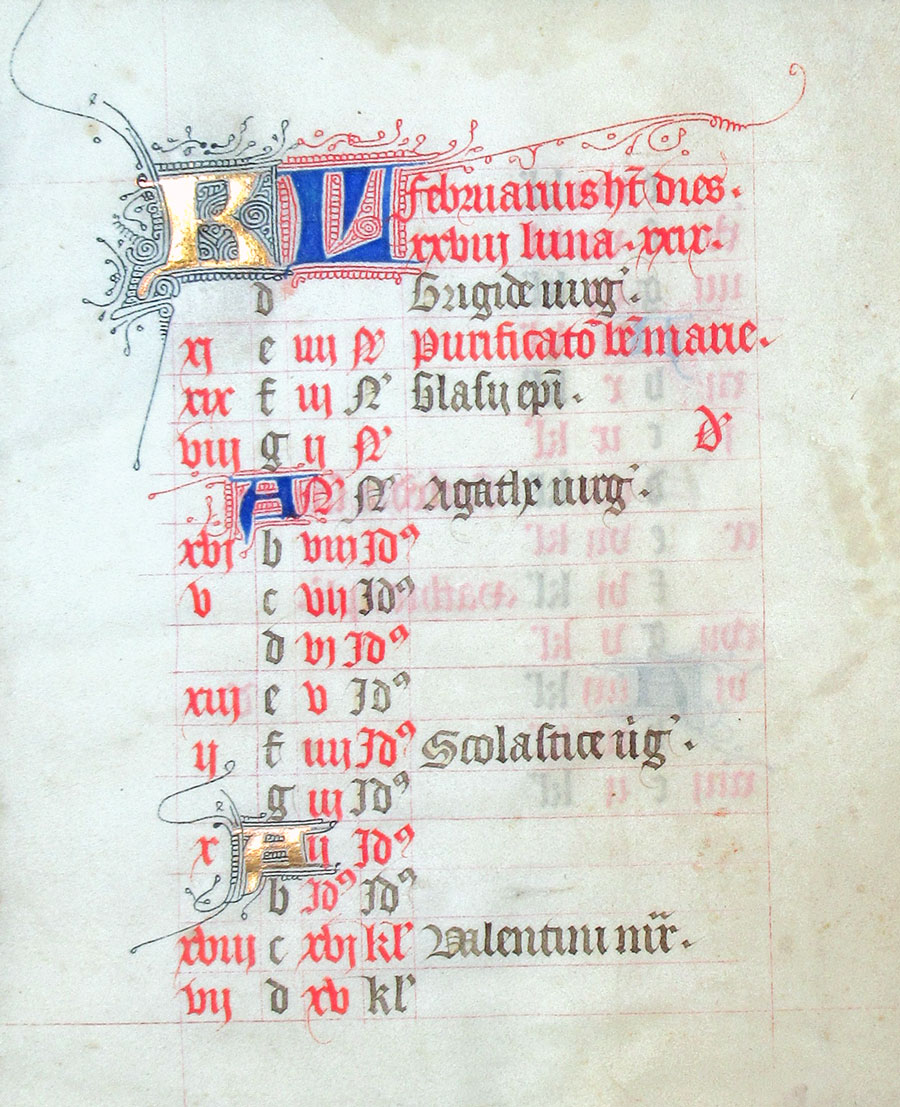 KL februarius ht dies.
xxviij luna. xxix.
d Brigide uirg'.
xj e iiij N' Purificato be marie.
xix f iij N' Blasij epi.
viij g ij N' D'
A N' N' Agathe uirg'.
xvj b viij Id'
v c vij Id'
d vj Id'
xiij e v Id'
ij f iiij Id' Scolastice uig'.
g iij Id'
x A ij Id'
b Id' Id'
xviij c xvj kl' Valentini mr.
vij d xv kl'